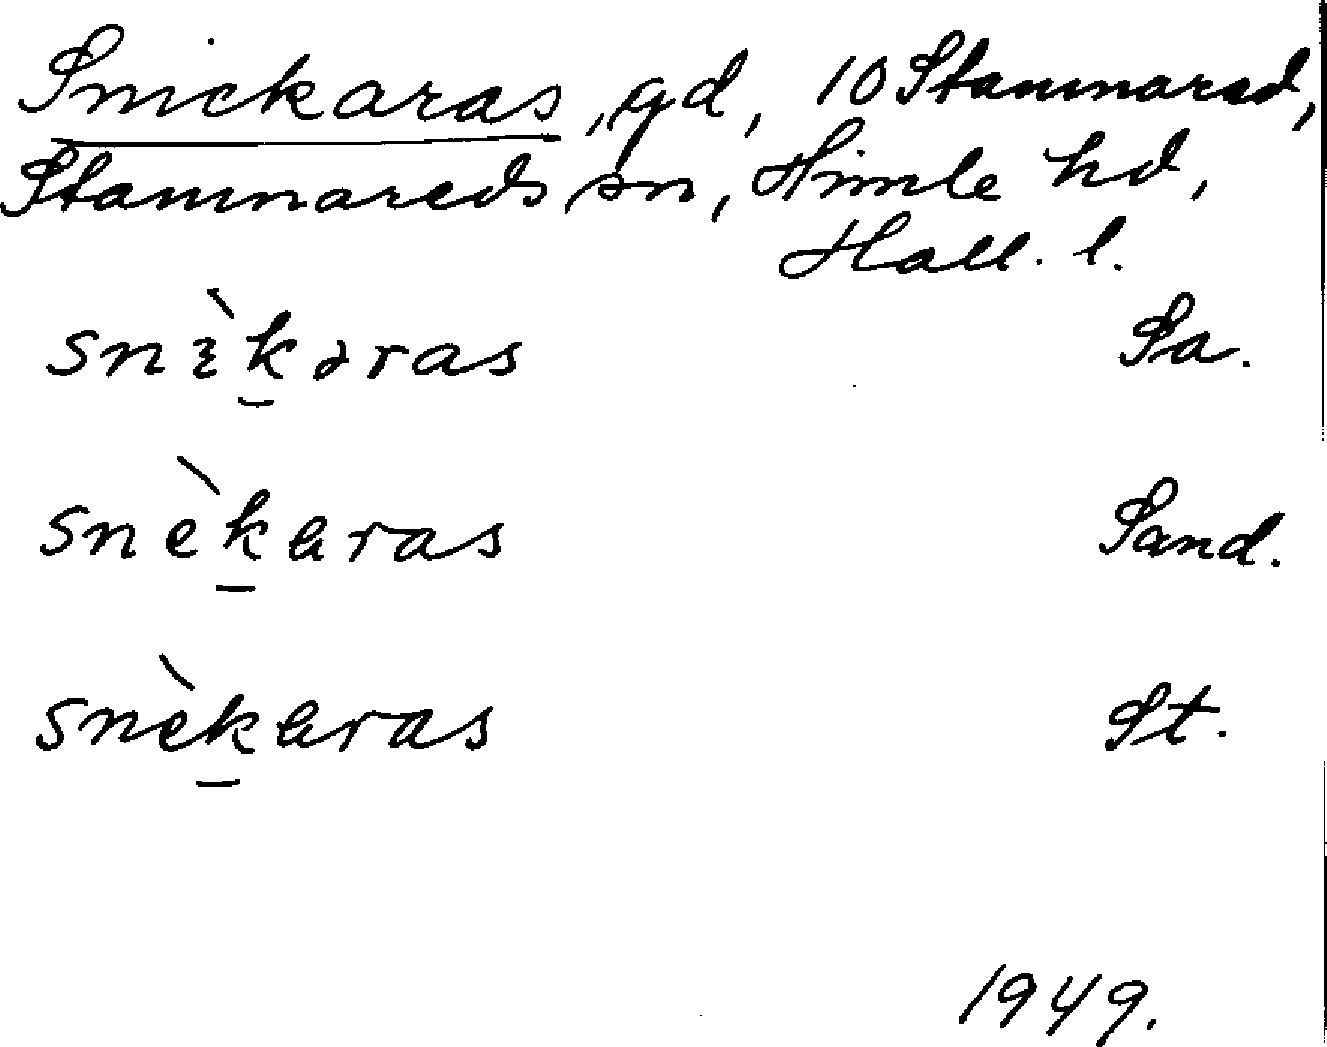 Snickaras, gd, 10 Stammared,
Stammareds sn, Himle hd,
Hall. l.
snìkəras Sa.
snèkaras Sand.
snèkaras St.
1949.